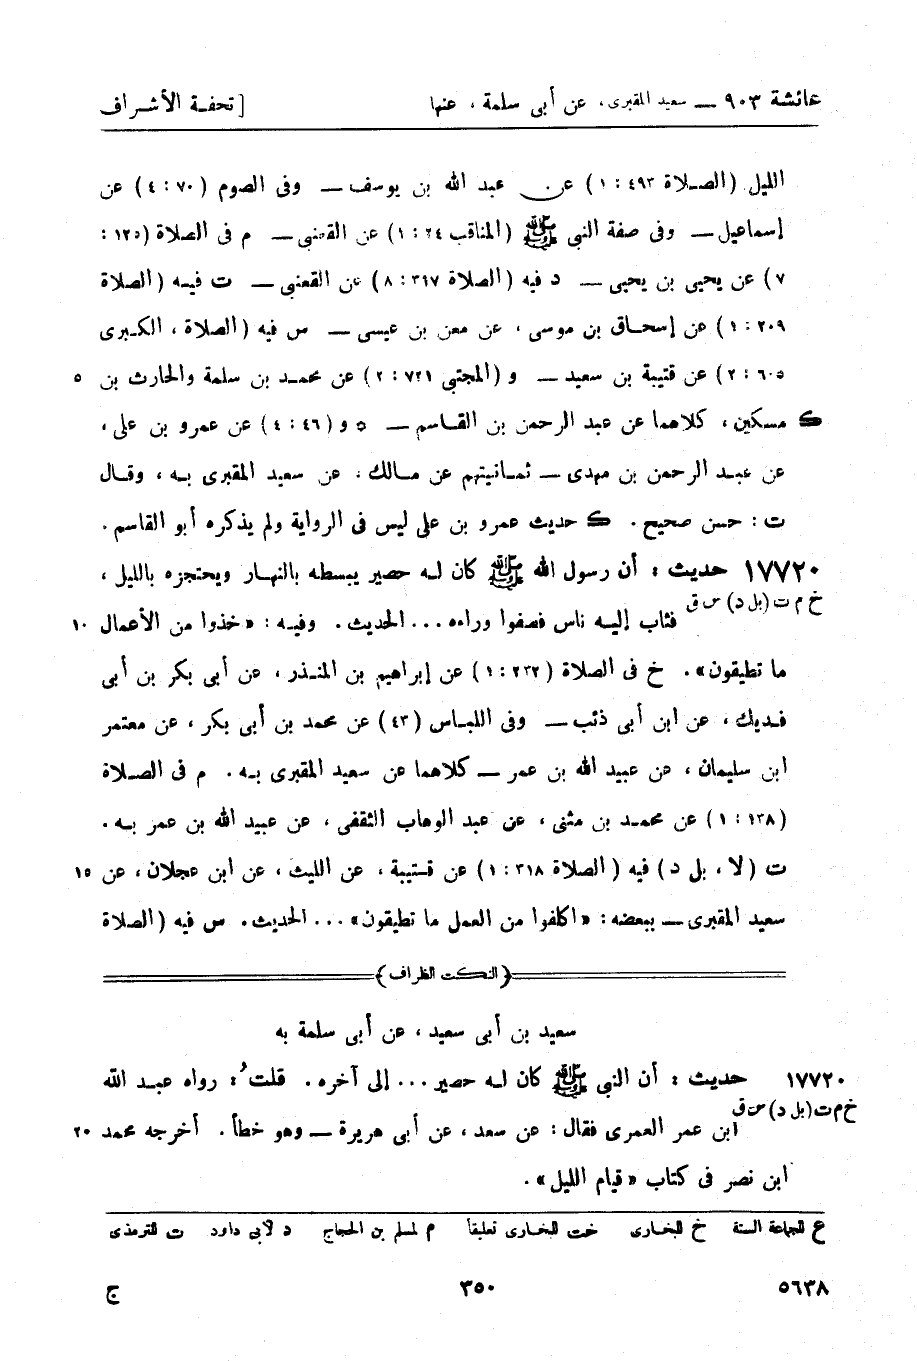 عائشة ٩٠٣ — سعيد المقبرى، عن أبى سلمة، عنها [تحفة الأشراف
الليل (الصلاة ٤٩٣ : ١) عن عبد الله بن يوسف — وفى الصوم (٧٠ : ٤) عن
إسماعيل — وفى صفة النبى ﷺ (المناقب ٢٤ : ١) عن القعنبى — م فى الصلاة (١٢٥ :
٧) عن يحيى بن يحيى — د فيه (الصلاة ٣١٧ : ٨) عن القعنبى — ت فيه (الصلاة
٢٠٩ : ١) عن إسحاق بن موسى، عن معن بن عيسى — س فيه (الصلاة، الكبرى
٦٠٥ : ٢) عن قتيبة بن سعيد — و (المجتبى ٧٢١ : ٢) عن محمد بن سلمة والحارث بن ٥
ك مسكين، كلاهما عن عبد الرحمن بن القاسم — ٥ و (٤٦ : ٤) عن عمرو بن على،
عن عبد الرحمن بن مهدى — ثمانيتهم عن مالك، عن سعيد المقبرى به، وقال
ت : حسن صحيح. ك حديث عمرو بن على ليس فى الرواية ولم يذكره أبو القاسم.
١٧٧٢٠ حديث : أن رسول الله ﷺ كان له حصير يبسطه بالنهار ويحتجزه بالليل،
خ م ت (بل د) س ق فثاب إليه ناس فصفوا وراءه ... الحديث. وفيه : «خذوا من الأعمال ١٠
ما تطيقون». خ فى الصلاة (٢٣٢ : ١) عن إبراهيم بن المنذر، عن أبى بكر بن أبى
فديك، عن ابن أبى ذئب — وفى اللباس (٤٣) عن محمد بن أبى بكر، عن معتمر
ابن سليمان، عن عبيد الله بن عمر — كلاهما عن سعيد المقبرى به. م فى الصلاة
(١٣٨ : ١) عن محمد بن مثنى، عن عبد الوهاب الثقفى، عن عبيد الله بن عمر به.
ت (لا، بل د) فيه (الصلاة ٣١٨ : ١) عن قتيبة، عن الليث، عن ابن عجلان، عن ١٥
سعيد المقبرى — ببعضه : «اكلفوا من العمل ما تطيقون» ... الحديث. س فيه (الصلاة
(النكت الظراف)
سعيد بن أبى سعيد، عن أبى سلمة به
١٧٧٢٠ حديث : أن النبى ﷺ كان له حصير ... إلى آخره. قلتُ : رواه عبد الله
خ م ت (بل د) س ق ابن عمر العمرى فقال : عن سعد، عن أبى هريرة — وهو خطأ. أخرجه محمد ٢٠
ابن نصر فى كتاب «قيام الليل».
ع للجماعة الستة خ للبخارى خت للبخارى تعليقاً م لمسلم بن الحجاج د لأبى داود ت للترمذى
٥٦٣٨ ٣٥٠ ج